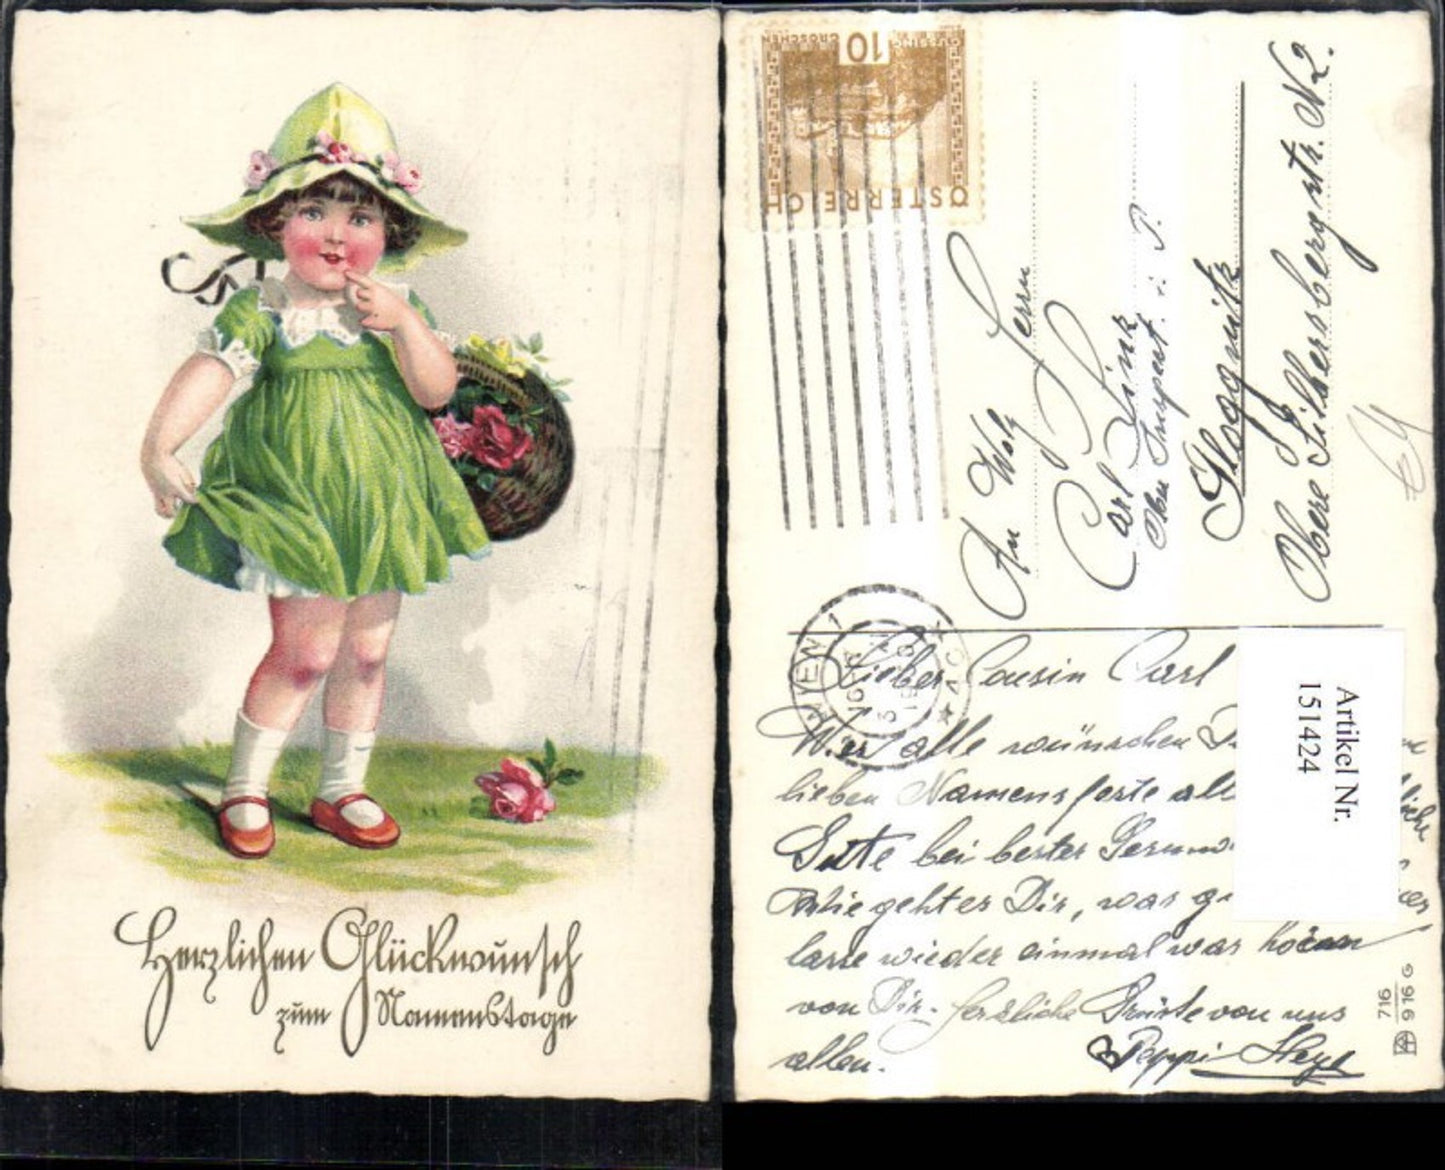 Herzlichen Glückwunsch
zum Namenstage
10
GROSCHEN
ÖSTERREICH
WIEN 1
An Wolg Herrn
Carl Link
Ober Inspekt. i. P.
Gloggnitz
Obere Silbersbergstr. N 2.
Lieber Cousin Carl
Wir alle wünschen
lieben Namensfeste all
Gute bei bester
Wie geht es Dir, was
lasse wieder einmal was hören
von Dir. Herzliche Grüsse von uns
allen. Peppi
Artikel Nr.
151424
716
916 G